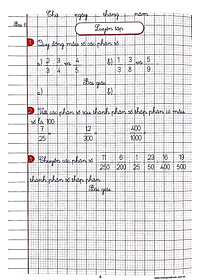 Thứ ngày tháng năm
Bài 1:
Luyện tập
1 Quy đồng mẫu số các phân số
a) 2/3 , 3/4 và 4/5 b) 1/3 , 3/8 và 5/9
Bài giải
a) b)
2 Viết các phân số sau thành phân số thập phân có mẫu
số là 100
7/25 12/300 400/1000
3 Chuyển các phân số 11/250 6/200 1/25 23/50 16/500 19/500
thành phân số thập phân
Bài giải